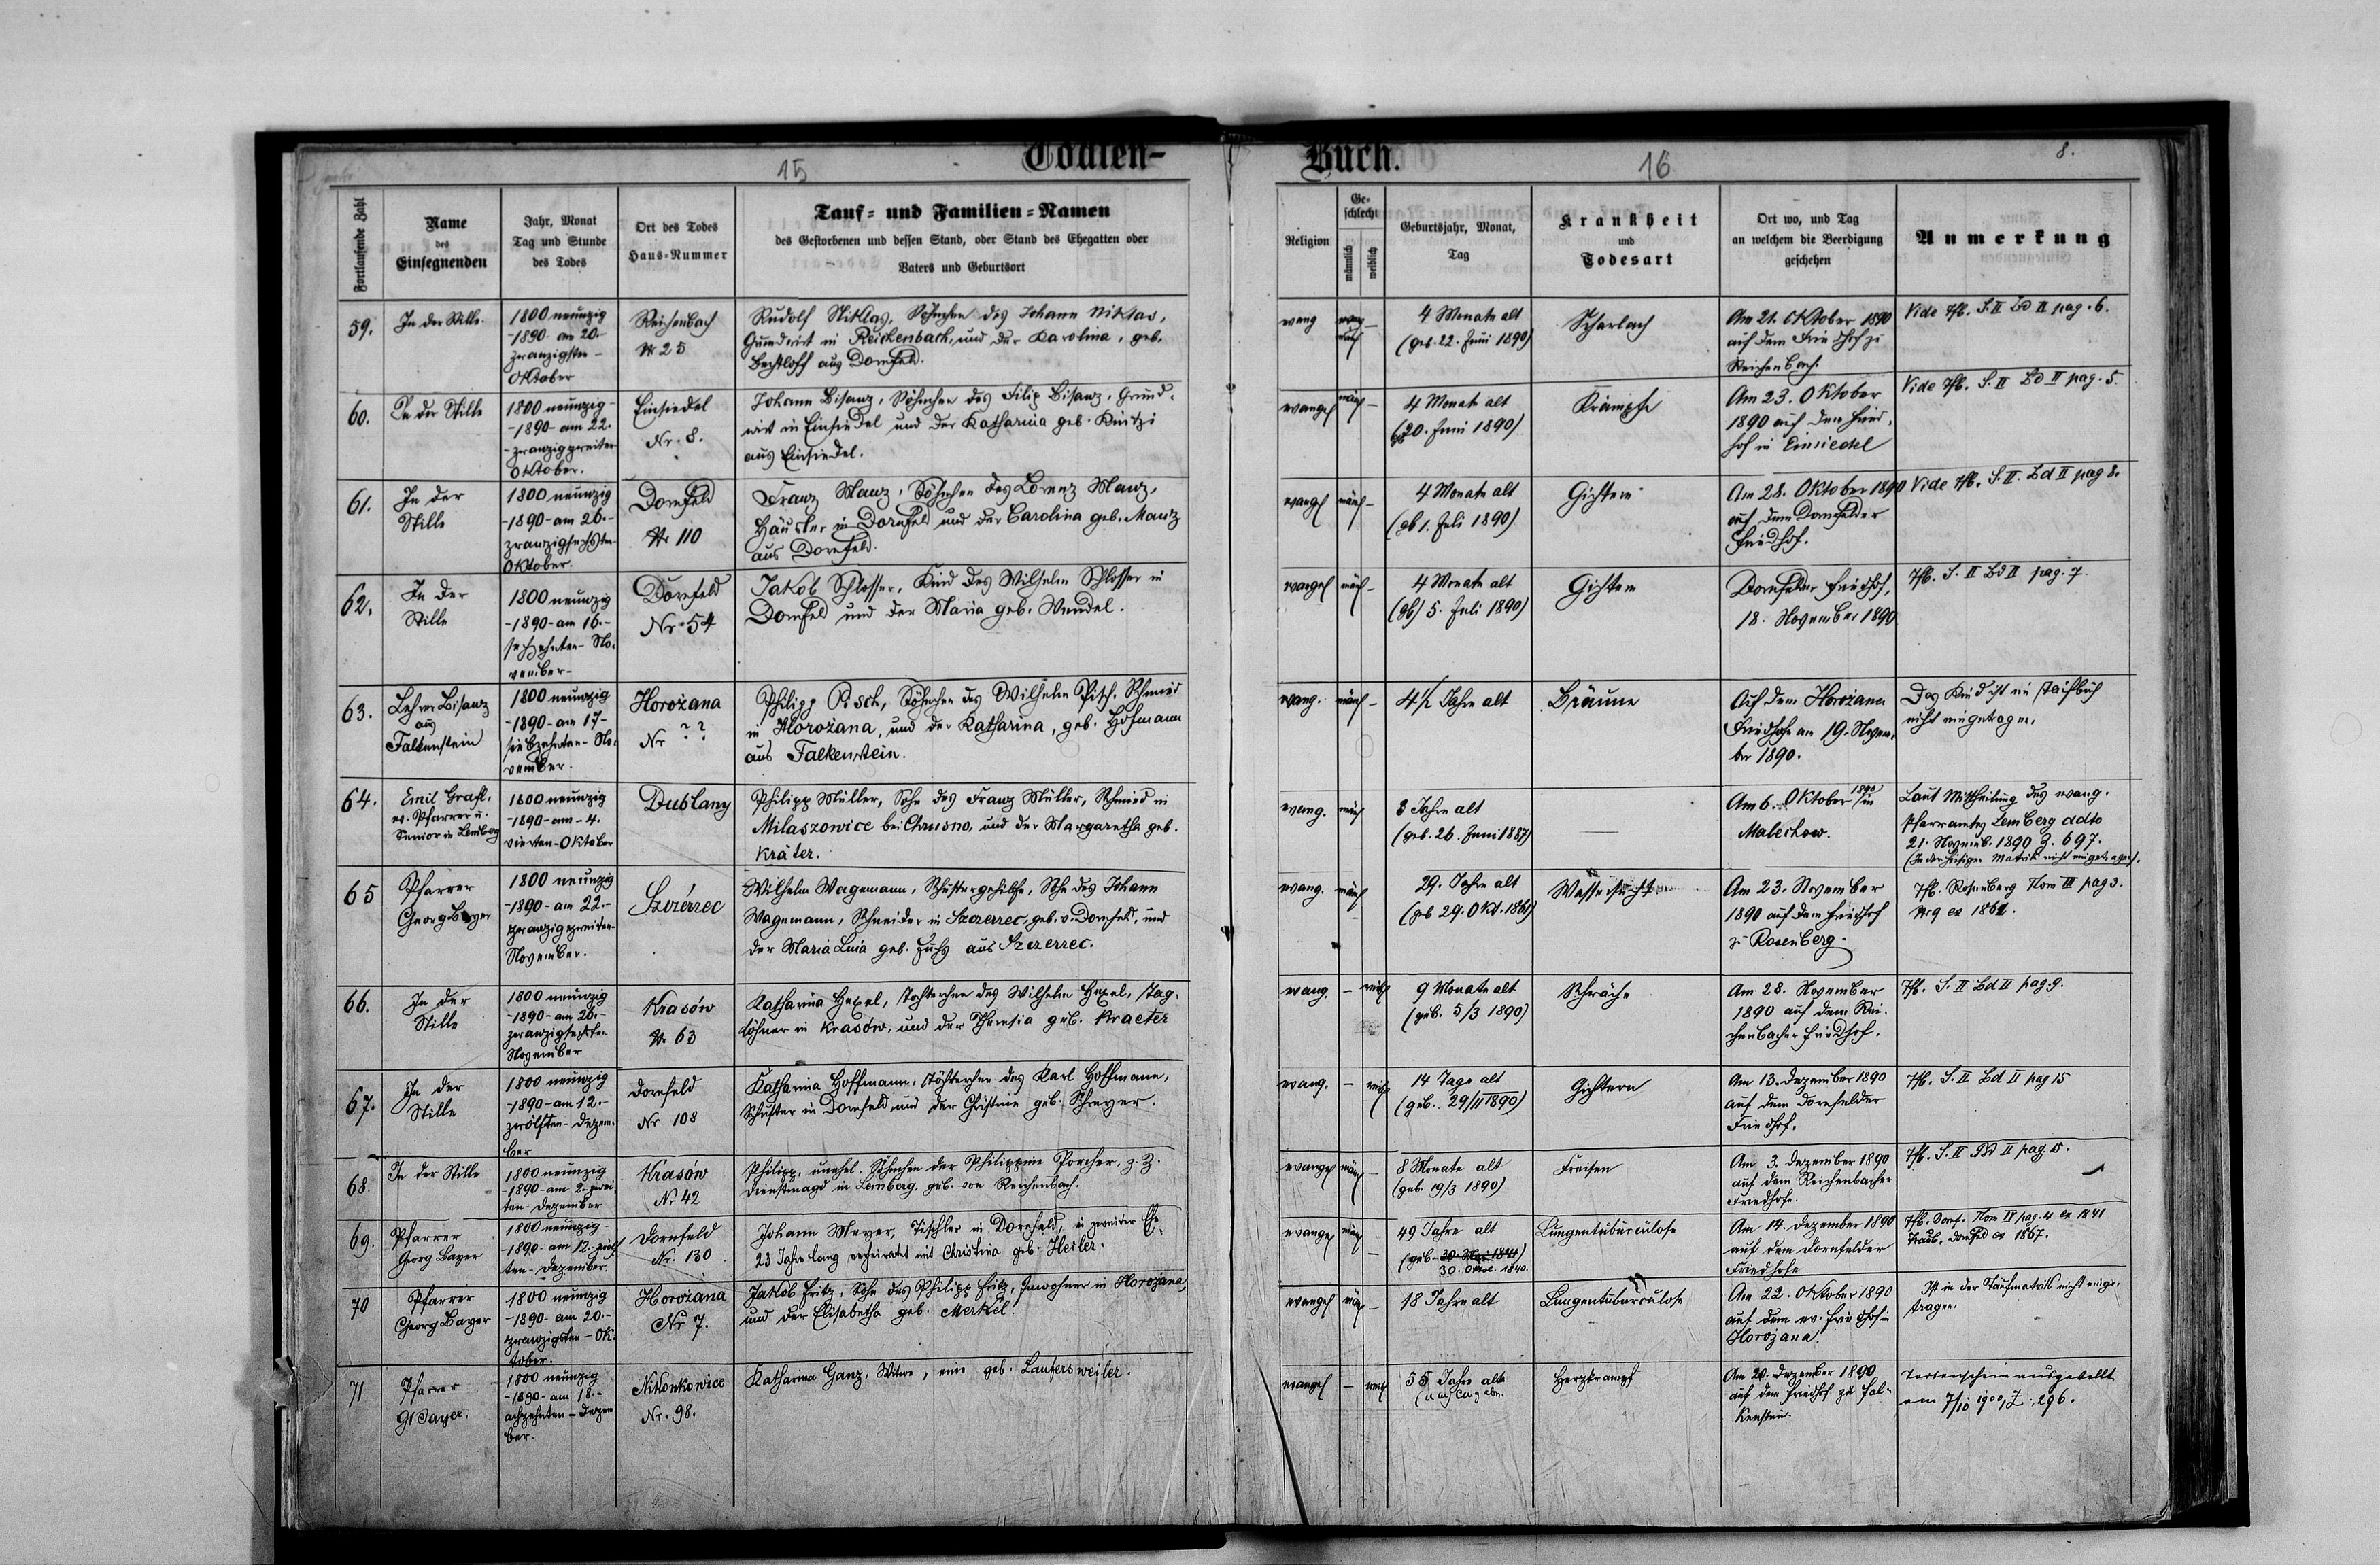 Todten-
Buch.
15
16
8.
Fortlaufende Zahl
Name
des
Einsegnenden
Jahr, Monat
Tag und Stunde
des Todes
Ort des Todes
Haus-Nummer
Tauf- und Familien-Namen
des Gestorbenen und dessen Stand, oder Stand des Ehegatten oder
Vaters und Geburtsort
Religion
Ge-
schlecht
männlich
weiblich
Geburtsjahr, Monat,
Tag
Krankheit
und
Todesart
Ort wo, und Tag
an welchem die Beerdigung
geschehen
Anmerkung
59.
In der Stille.
1800 neunzig
-1890- am 20.-
zwanzigsten-
Oktober
Reichenbach
Nr 25
Rudolf Niklas, Söhnchen des Johann Niklas,
Grundwirt in Reichenbach, und der Karolina, geb.
Bechtloff aus Dornfeld.
evang
männl
-
4 Monate alt
(geb. 22. Juni 1890)
Scharlach
Am 21. Oktober 1890
auf dem Friedhof zu
Reichenbach.
Vide Tfb. S. II Bd II pag. 6.
60.
In der Stille
1800 neunzig-
-1890- am 22.
-zwanzigzweiten
Oktober.
Einsiedel
Nr. 8.
Johann Bisanz, Söhnchen des Filip Bisanz, Grund-
wirt in Einsiedel und der Katharina geb. Kintzi
aus Einsiedel.
evangel
männl
-
4 Monate alt
(geb 20. Juni 1890)
Krämpfe
Am 23. Oktober
1890 auf dem Fried-
hof in Einsiedel
Vide Tfb. S. II Bd II pag. 5.
61.
In der
Stille
1800 neunzig
-1890- am 26.-
zwanzigsechsten-
Oktober.
Dornfeld
Nr 110
Franz Manz, Söhnchen des Lorenz Manz,
Häusler in Dornfeld und der Carolina geb. Manz
aus Dornfeld.
evangel
männl
-
4 Monate alt
(gb 1. Juli 1890)
Gichtern
Am 28. Oktober 1890
auf dem Dornfelder
Friedhof.
Vide Tfb. S. II. Bd II pag 8.
62.
In der
Stille
1800 neunzig
-1890- am 16.-
sechzehnten- No-
vember-
Dornfeld
Nr. 54
Jakob Schlosser, Kind des Wilhelm Schlosser in
Dornfeld und der Maria geb. Wendel.
evangel
männl
-
4 Monate alt
(gb) 5. Juli 1890)
Gichtern
Dornfelder Friedhof,
18. November 1890
Tfb. S. II Bd II pag. 7.
63.
Lehrer Bisanz
aus
Falkenstein
1800 neunzig
-1890- am 17-
siebzehnten- No-
vember.
Horożana
Nr ??
Philipp Pisch, Söhnchen des Wilhelm Pisch, Schmied
in Horożana, und der Katharina, geb. Hofmann
aus Falkenstein.
evang.
männl
-
4 1/2 Jahre alt
Bräune
Auf dem Horożana
Friedhofe am 19. Novem-
ber 1890.
Das Kind ist im Taufbuch
nicht eingetragen.
64.
Emil Grafl,
ev. Pfarrer u.
Senior in Lemberg
1800 neunzig
-1890- am- 4.
vierten- Oktober
Dublany
Philipp Müller, Sohn des Franz Müller, Schmied in
Milaszowice bei Chrusno, und der Margaretha geb.
Kräter.
evang.
männl
3 Jahre alt
(geb. 26. Juni 1887)
Am 6. Oktober 1890 in
Malechow.
Laut Mittheilung des evang.
Pfarramtes Lemberg ddto
21. Novemb. 1890 Z. 697.
(In der hiesigen Matrik nicht eingetragen).
65
Pfarrer
Georg Bayer
1800 neunzig
-1890- am 22.-
zwanzigzweiten-
November.
Szczerzec
Wilhelm Wagemann, Schustergehilfe, Sohn des Johann
Wagemann, Schneider in Szczerzec, geb. v. Dornfeld, und
der Maria Luia geb. Fuchs aus Szczerzec.
evang.
männl
29. Jahre alt
(geb 29. Okt. 1861)
Wassersucht
Am 23. November
1890 auf dem Friedhof
zu Rosenberg.
Tfb. Rosenberg Tom III pag 3.
Nr 9 ex 1861.
66.
In der
Stille
1800 neunzig
-1890- am 26.-
zwanzigsechsten
November
Krasów
Nr 63
Katharina Hexel, Töchterchen des Wilhelm Hexel, Tag-
löhner in Krasów, und der Theresia geb. Kraeter
evang.
-
weibl
9 Monate alt
(geb. 5/3 1890)
Schwäche
Am 28. November
1890 auf dem Rei-
chenbacher Friedhof.
Tfb. S. II Bd II pag. 9.
67.
In der
Stille
1800 neunzig
-1890- am 12.-
zwölften- Dezem-
ber
Dornfeld
Nr 108
Katharina Hoffmann, Töchterchen des Karl Hoffmann,
Schuster in Dornfeld und der Christine geb. Schreyer.
evang.
-
weibl
14 Tage alt
(geb. 29/11 1890)
Gichtern
Am 13. Dezember 1890
auf dem Dornfelder
Friedhof.
Tfb. S. II Bd II pag 15
68.
In der Stille
1800 neunzig
-1890- am 2. zwei
ten- Dezember
Krasów
Nr 42
Philipp, unehel. Söhnchen der Philippine Porcher, z. Z.
Dienstmagd in Lemberg, geb. von Reichenbach.
evangel
männl
-
8 Monate alt
(geb. 19/3 1890)
Freisen
Am 3. Dezember 1890
auf dem Reichenbacher
Friedhofe.
Tfb. S. II Bd II pag. 15.
69.
Pfarrer
Georg Bayer
1800 neunzig-
-1890- am 12. zwölf
ten- Dezember.
Dornfeld
Nr. 130
Johann Meyer, Tischler in Dornfeld, in zweiter Ehe,
23 Jahre lang verheiratet mit Christina geb. Heiler.
evangel
männl
-
49 Jahre alt
(geb. 30. Mai 1841)
30. 1840.
Lungentuberculose
Am 14. Dezember 1890
auf dem Dornfelder
Friedhofe
Tfb. Dorf. Tom IV pag. 4 ex 1841
Traub. Dornfeld ex 1867.
70
Pfarrer
Georg Bayer
1800 neunzig
-1890- am 20.-
zwanzigsten- Ok-
tober.
Horożana
Nr 7.
Jakob Fritz, Sohn des Philipp Fritz, Inwohner in Horożana,
und der Elisabetha geb. Merkel.
evangel
männl
-
18 Jahre alt
Lungentuberculose
Am 22. Oktober 1890
auf dem ev. Friedhof in
Horożana.
Ist in der Taufmatrik nicht einge-
tragen.
71
Pfarrer
G Bayer.
1800 neunzig
-1890- am 18.-
achzehnten- Dezem
ber.
Nikonkowice
Nr. 98.
Katharina Ganz, Witwe, eine geb. Lautersweiler.
evangel
-
weibl
55 Jahre alt
Herzkrampf
Am 20. Dezember 1890
auf dem Friedhof zu Fal-
kenstein.
Totenschein ausgestellt
am 7/10 1900, Z. 296.